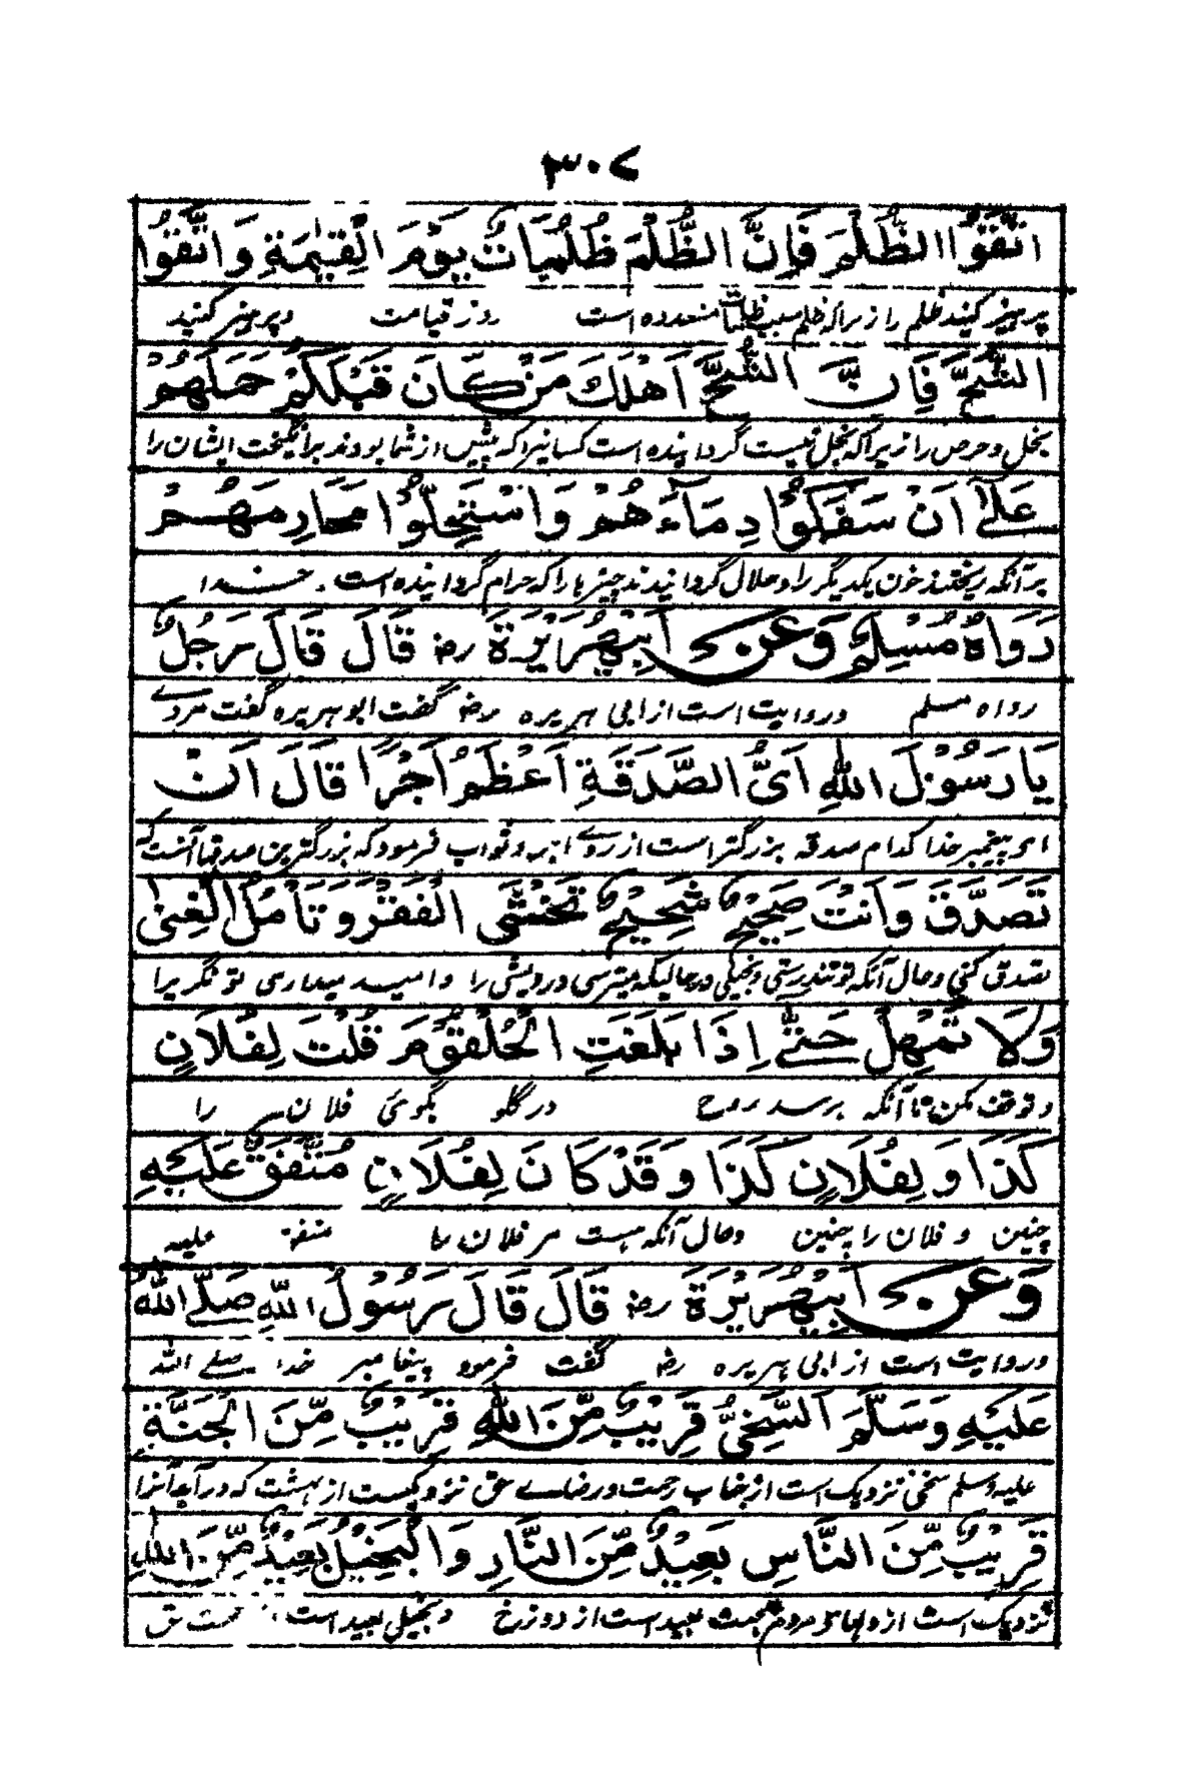 ۳۰۷
اتَّقُوا الظُّلْمَ فَاِنَّ الظُّلْمَ ظُلُمَاتٌ يَوْمَ الْقِيٰمَةِ وَاتَّقُوا
پرہیز کنید ظلم را زیراکہ ظلم سبب ظلمات متعددہ است روز قیامت وپرہیز کنید
الشُّحَّ فَاِنَّ الشُّحَّ اَهْلَكَ مَنْ كَانَ قَبْلَكُمْ حَمَلَهُمْ
بخل وحرص را زیراکہ بخل نیست گردانیدہ است کسانیرا کہ پیش از شما بودند برانگیخت ایشان را
عَلٰۤى اَنْ سَفَكُوْا دِمَآءَهُمْ وَاسْتَحِلُّوْا مَحَارِمَهُمْ
برآنکہ ریختند خون یکدیگر را وحلال گردانیدند چیزہا را کہ حرام گردانیدہ است . خدا
رَوَاهُ مُسْلِمٌ وَعَنْ اَبِيْهُرَيْرَةَ رضہ قَالَ قَالَ رَجُلٌ
رواہ مسلم وروایت است از ابی ہریرہ رضہ گفت ابوہریرہ گفت مردے
يَا رَسُوْلَ اللّٰهِ اَىُّ الصَّدَقَةِ اَعْظَمُ اَجْرًا قَالَ اَنْ
ای پیغمبر خدا کدام صدقہ بزرگتر است از روے اجر وثواب فرمود کہ بزرگترین صدقہا آنست کہ
تَصَدَّقَ وَاَنْتَ صَحِيْحٌ شَحِيْحٌ تَخْشَى الْفَقْرَ وَتَأْمُلُ الْغِنٰى
تصدق کنی وحال آنکہ تو تندرستی وبخیلی درحالیکہ میترسی درویشی را وامید میداری توانگریرا
وَلَا تُمْهِلْ حَتّٰى اِذَا بَلَغَتِ الْحُلْقُوْمَ قُلْتَ لِفُلَانٍ
وتوقف مکن تا آنکہ برسد روح در گلو بگوئی فلان را
كَذَا وَلِفُلَانٍ كَذَا وَقَدْ كَانَ لِفُلَانٍ مُتَّفَقٌ عَلَيْهِ
چنین و فلان را چنین وحال آنکہ ہست مر فلان را متفق علیہ
وَعَنْ اَبِيْهُرَيْرَةَ رضہ قَالَ قَالَ رَسُوْلُ اللّٰهِ صَلَّى اللّٰهُ
وروایت است از ابی ہریرہ رضہ گفت فرمود پیغامبر خدا صلے اللہ
عَلَيْهِ وَسَلَّمَ اَلسَّخِىُّ قَرِيْبٌ مِّنَ اللّٰهِ قَرِيْبٌ مِّنَ الْجَنَّةِ
علیہ وسلم سخی نزدیک است از جناب رحمت ورضاے حق نزدیکست از بہشت کہ درآید آنرا
قَرِيْبٌ مِّنَ النَّاسِ بَعِيْدٌ مِّنَ النَّارِ وَالْبَخِيْلُ بَعِيْدٌ مِّنَ اللّٰهِ
نزدیک است از دلہای مردم بعید است از دوزخ وبخیل بعید است از حق